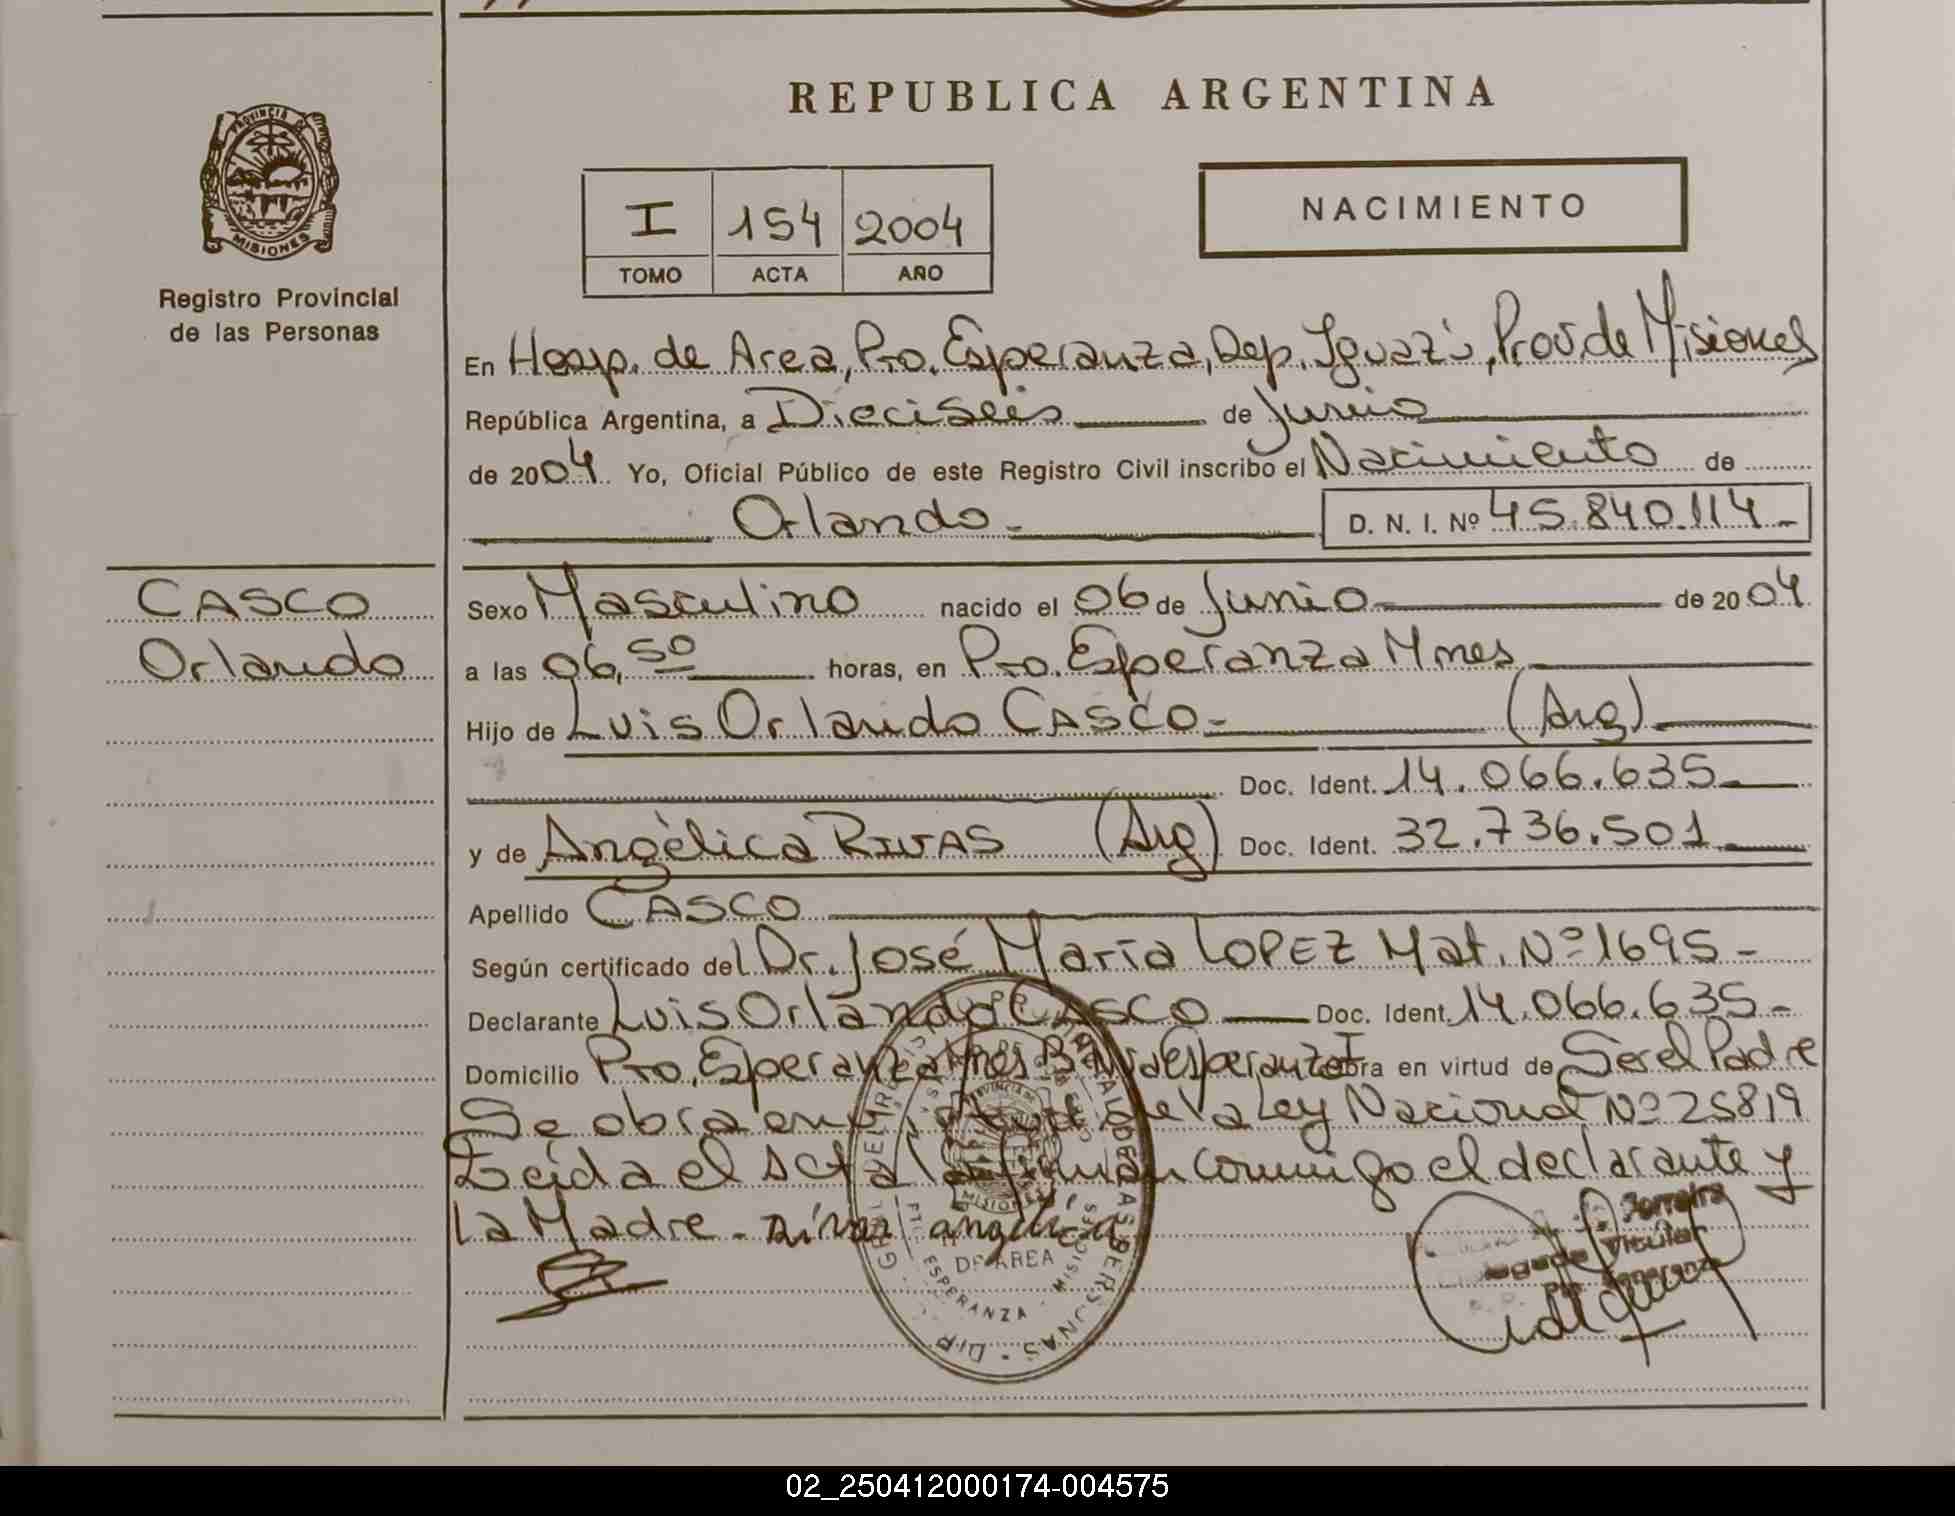 REPUBLICA ARGENTINA
PROVINCIA DE
MISIONES
Registro Provincial
de las Personas
I 154 2004
TOMO ACTA AÑO
NACIMIENTO
En Hosp. de Area, Pto. Esperanza, Dep. Iguazú, Prov. de Misiones
República Argentina, a Dieciseis de Junio
de 2004. Yo, Oficial Público de este Registro Civil inscribo el Nacimiento de
Orlando.- D. N. I. Nº 45.840.114.-
CASCO
Orlando
Sexo Masculino nacido el 06 de Junio.- de 2004
a las 06,50 horas, en Pto. Esperanza Mnes
Hijo de Luis Orlando CASCO.- (Arg).-
Doc. Ident. 14.066.635.-
y de Angélica RIVAS (Arg) Doc. Ident. 32.736.501.-
Apellido CASCO
Según certificado del Dr. José María LOPEZ Mat. Nº 1695.-
Declarante Luis Orlando CASCO Doc. Ident. 14.066.635.-
Domicilio Pto. Esperanza Mnes. Esperanza I obra en virtud de Ser el Padre
Se obra en de la Ley Nacional Nº 25819
Leída el acta la firman conmigo el declarante y
la Madre.- angelica
DE AREA
ESPERANZA - MISIONES
Ferreira
Titular
Esperanza
02_250412000174-004575